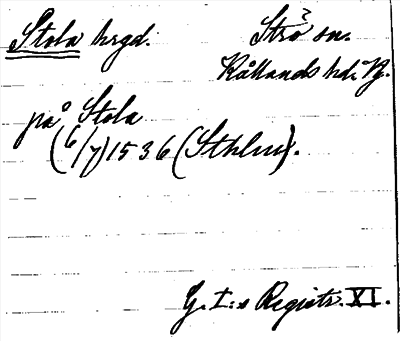 Stola hrgd.
Strö sn.
Kållands hd. Vg.
på Stola
(6/7) 1536 (Sthlm).
G. I:s Registr. XI.